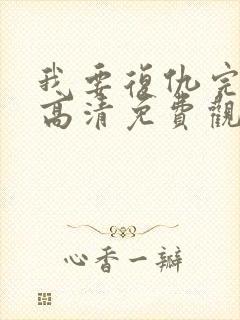 我要復仇完
高清免費觀
心香一瓣